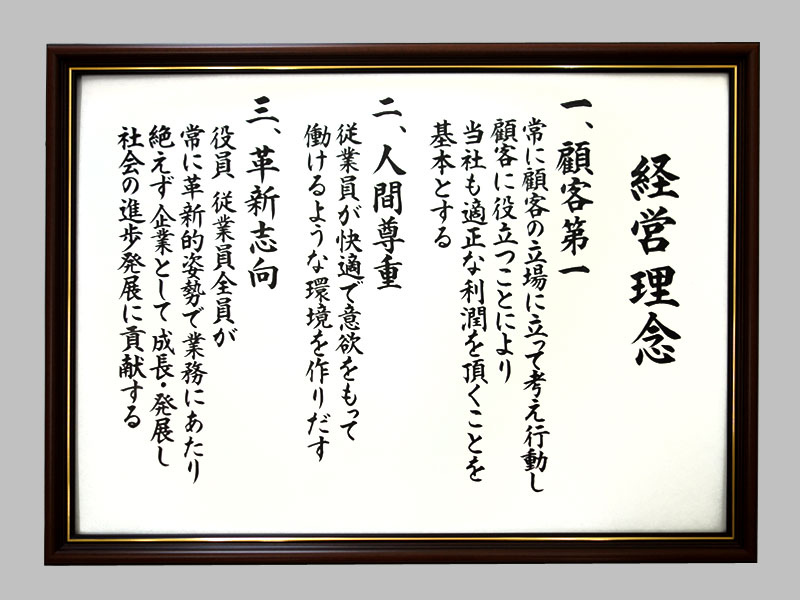 経営理念
一、顧客第一
常に顧客の立場に立って考え行動し
顧客に役立つことにより
当社も適正な利潤を頂くことを
基本とする
二、人間尊重
従業員が快適で意欲をもって
働けるような環境を作りだす
三、革新志向
役員、従業員全員が
常に革新的姿勢で業務にあたり
絶えず企業として成長・発展し
社会の進歩発展に貢献する